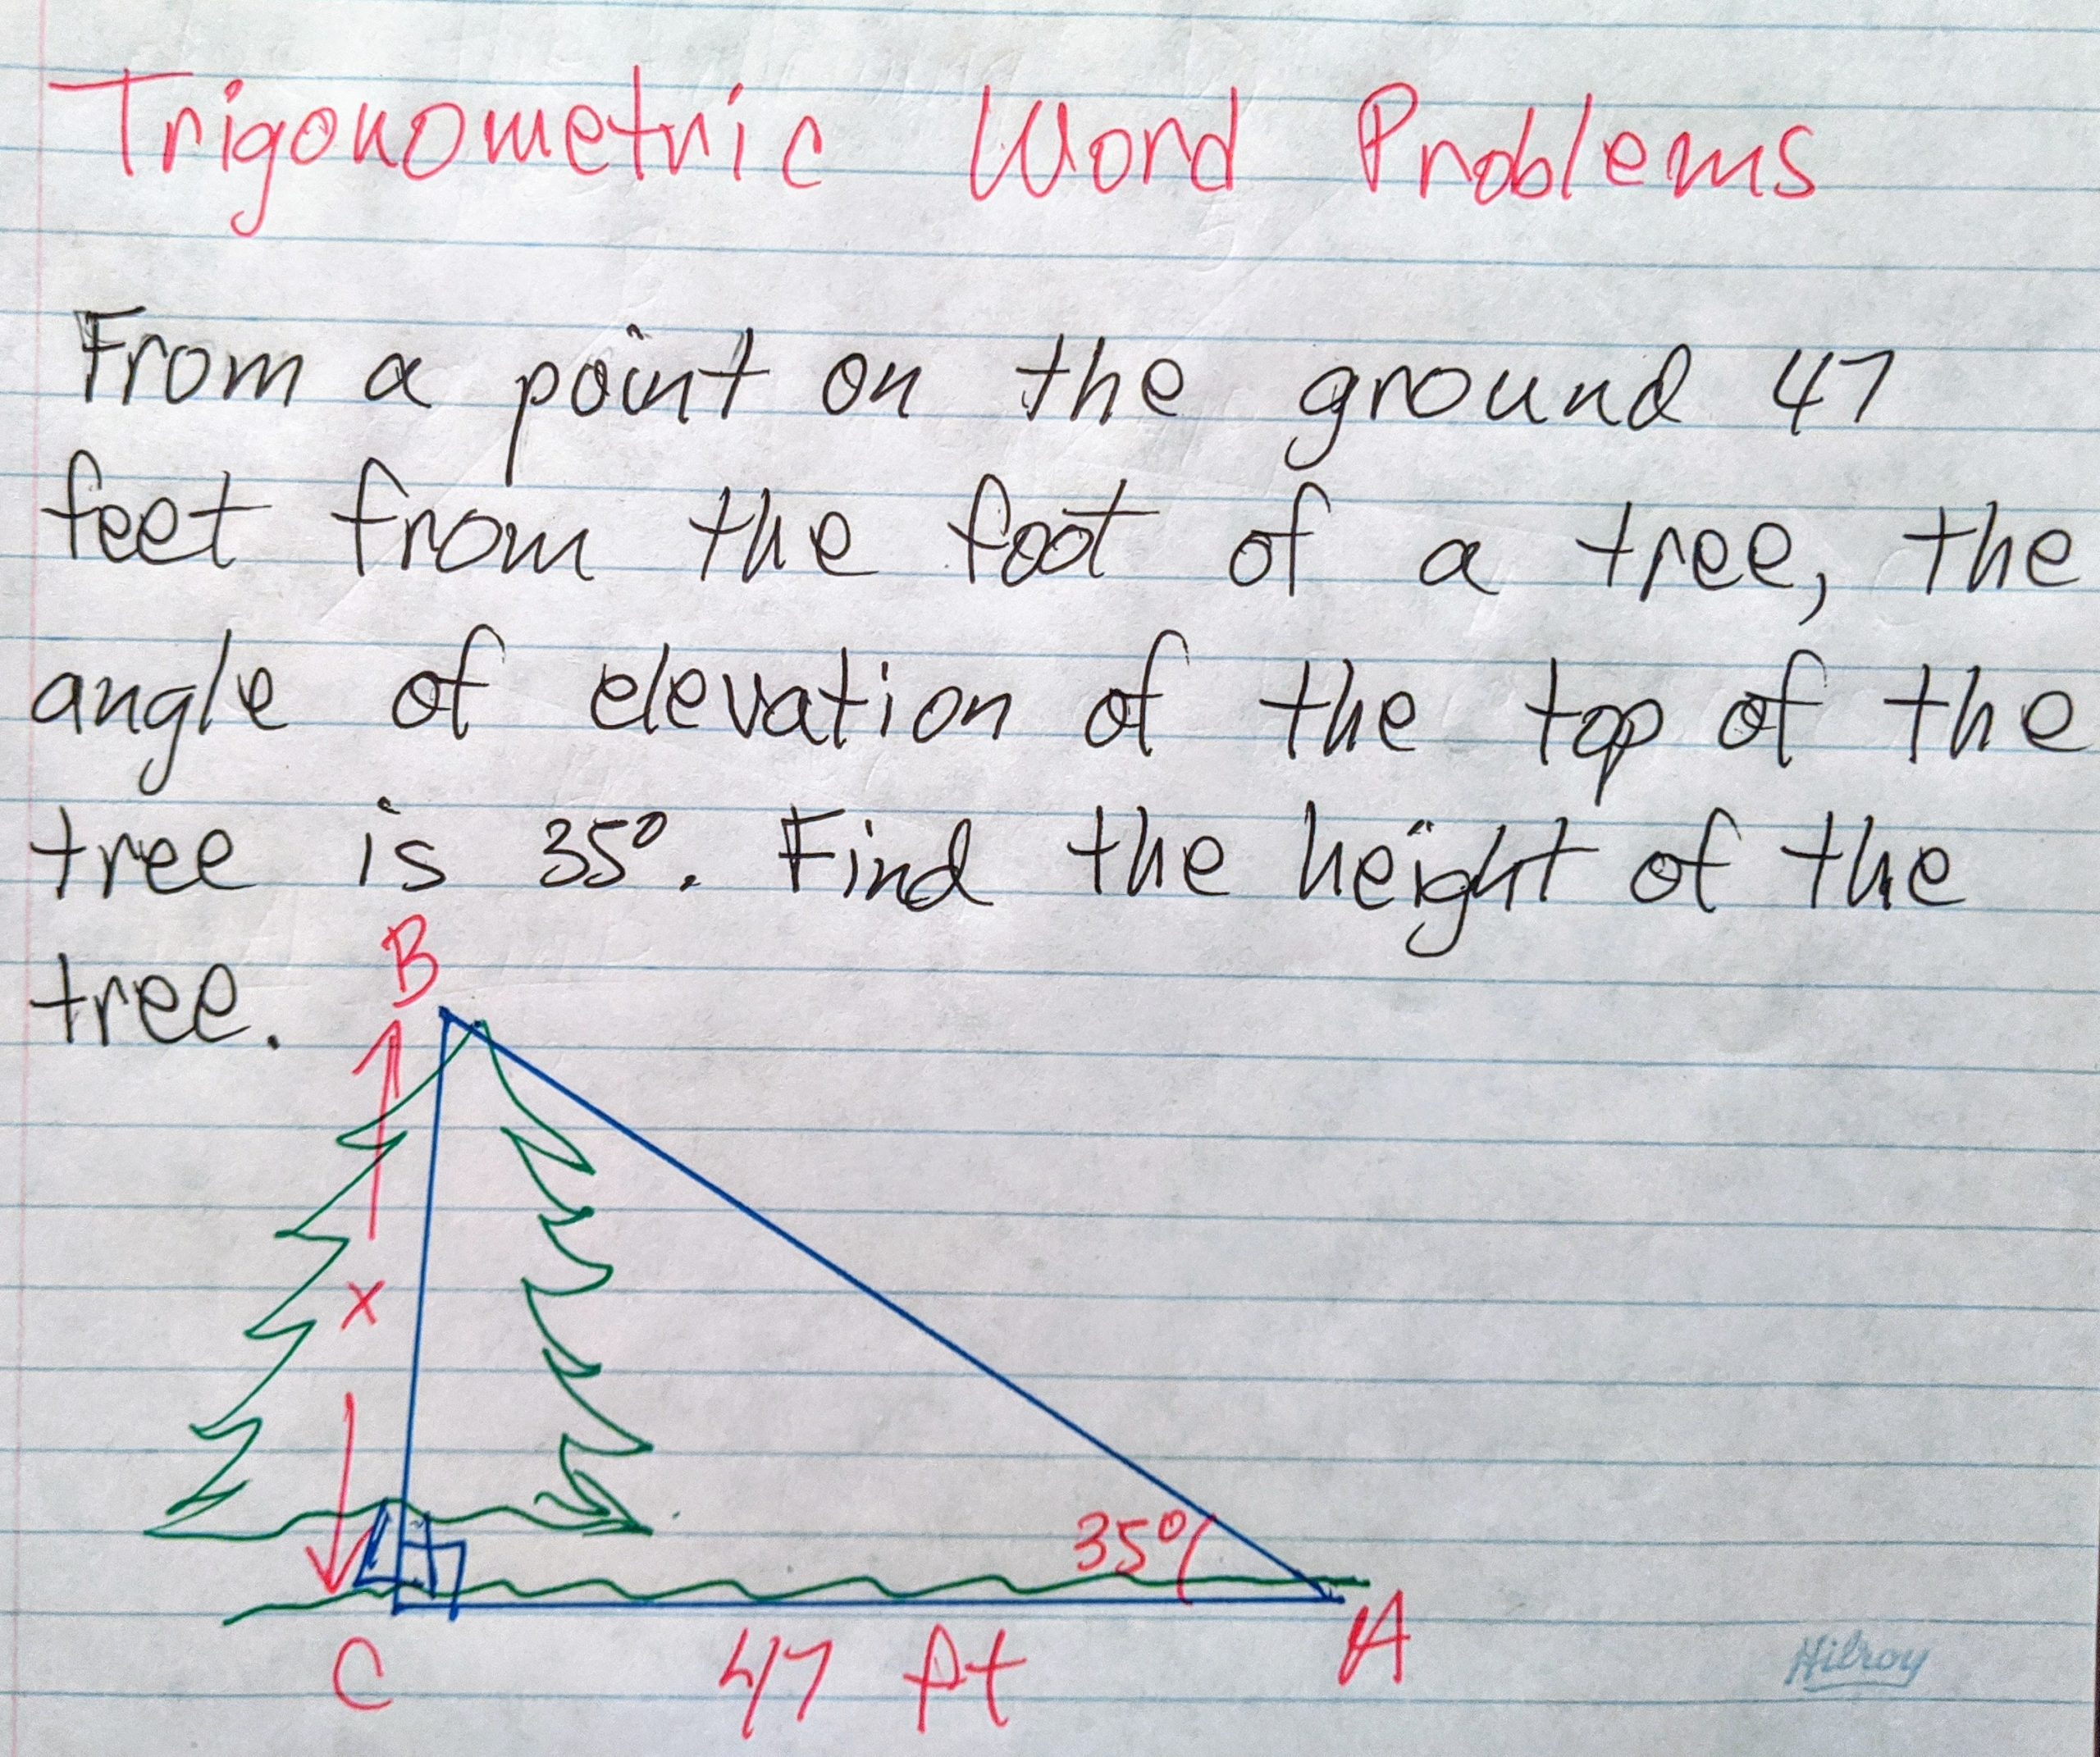 Trigonometric Word Problems
From a point on the ground 47
feet from the foot of a tree, the
angle of elevation of the top of the
tree is 35°. Find the height of the
tree.
B
x
35°
C
47 ft
A
Hilroy